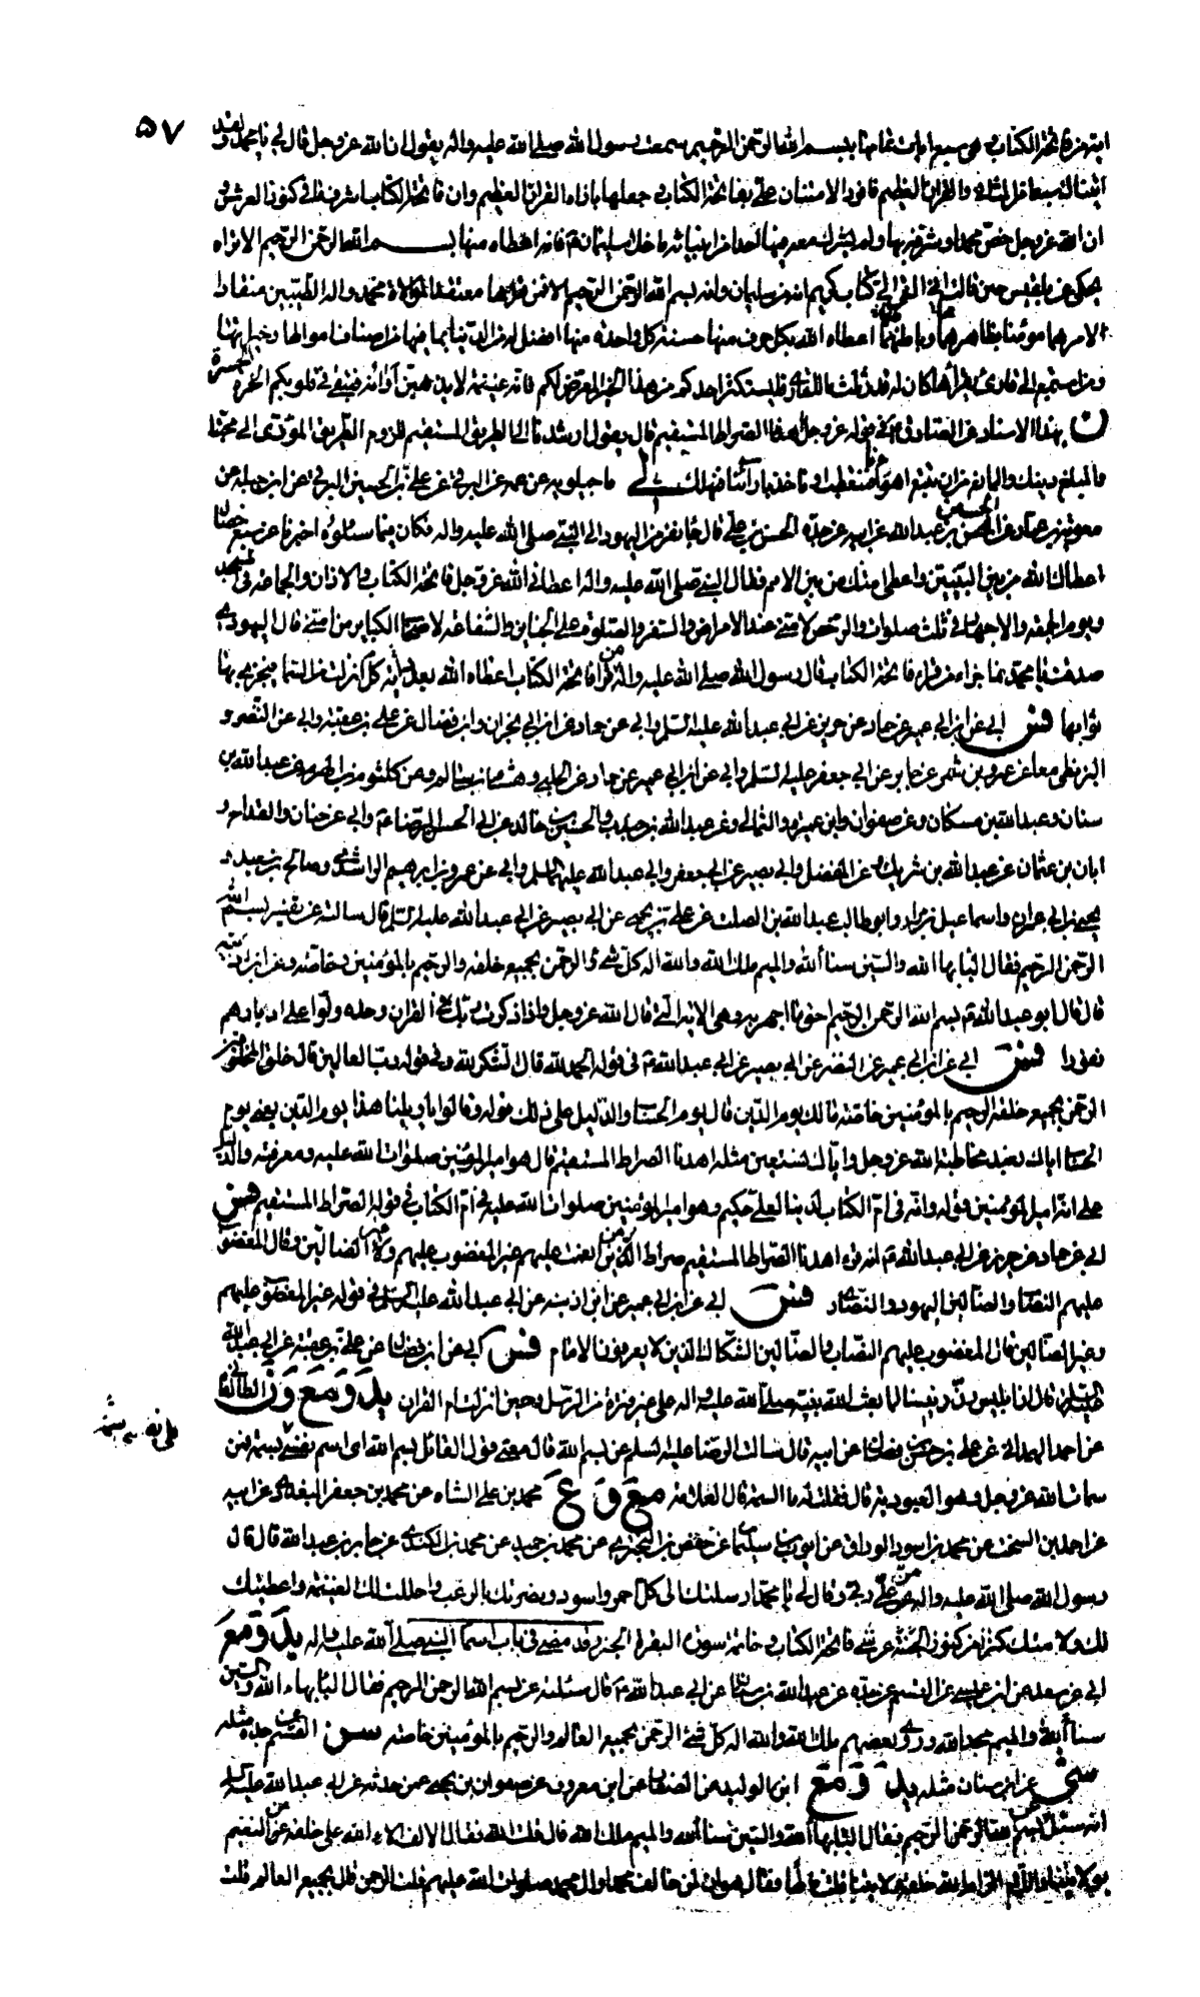 ۵۷
اية من فاتحة الكتاب وهى سبع ايات تمامها بسم الله الرحمن الرحيم سمعت رسول الله صلى الله عليه واله يقول ان الله عز وجل قال لى يا محمد ولقد
اتيناك سبعا من المثانى والقران العظيم فافرد الامتنان على بفاتحة الكتاب وجعلها بازاء القران العظيم وان فاتحة الكتاب اشرف ما فى كنوز العرش و
ان الله عز وجل خص محمدا وشرفه بها ولم يشرك معه فيها احدا من انبيائه ما خلا سليمان فانه اعطاه منها بسم الله الرحمن الرحيم الا تراه
يحكى عن بلقيس حين قالت انى القى الى كتاب كريم انه من سليمان وانه بسم الله الرحمن الرحيم الا فمن قراها معتقدا لموالاة محمد واله الطيبين منقادا
لامرهما مؤمنا بظاهرهما وباطنهما اعطاه الله بكل حرف منها حسنة كل واحدة منها افضل له من الدنيا بما فيها من اصناف اموالها وخيراتها
ومن استمع الى قارئ يقرأها كان له قدر ثلث ما للقارئ فليستكثر احدكم من هذا الخير المعرض لكم فانه غنيمة لا يذهبن اوانه فيبقى فى قلوبكم الحسرة
ن بهذا الاسناد عن الصادق فى قوله عز وجل اهدنا الصراط المستقيم قال يقول ارشدنا الى الطريق المستقيم للزوم الطريق المؤدى الى محبتك
والمبلغ دينك والمانع من ان نتبع اهوائنا فنعطب او ناخذ بارائنا فنهلك لى ماجيلويه عن عمه عن البرقى عن على بن الحسين البرقى عن ابن جبلة عن
معوية بن عمار عن الحسن بن عبد الله عن ابيه عن جده الحسن بن على قال جاء نفر من اليهود الى النبى صلى الله عليه واله فكان فيما سئلوه اخبرنا عن سبع خصال
اعطاك الله من بين النبيين واعطى امتك من بين الامم فقال النبى صلى الله عليه واله اعطانى الله عز وجل فاتحة الكتاب والاذان والجماعة فى المسجد
ويوم الجمعة والاجهار فى ثلث صلوات والرخص لامتى عند الامراض والسفر والصلوة على الجنائز والشفاعة لاصحاب الكبائر من امتى قال اليهودى
صدقت يا محمد فما جزاء من قرأ فاتحة الكتاب قال رسول الله صلى الله عليه واله من قرأ فاتحة الكتاب اعطاه الله بعدد كل اية انزلت من السماء فيجزى بها
ثوابها فس ابى عن ابن ابى عمير عن حماد عن حريز عن ابى عبد الله عليه السلم وابى عن حماد عن ابن ابى نجران وابن فضال عن على بن عقبة وابى عن النضر و
البزنطى معا عن عمرو بن شمر عن جابر عن ابى جعفر عليه السلم وابى عن ابن ابى عمير عن حماد عن الحلبى وهشام بن سالم وعن كلثوم بن الهرم عن عبد الله بن
سنان وعبد الله بن مسكان وعن صفوان وابن عميرة والثمالى وعن عبد الله بن جندب والحسين بن خالد عن ابى الحسن الرضا وابى عن حنان والقداح و
ابان بن عثمان عن عبد الله بن شريك عن المفضل وابى بصير عن ابى جعفر وابى عبد الله عليهما السلم وابى عن عمرو بن ابرهيم الراشدى وصالح بن سعيد و
يحيى بن ابى عمران واسماعيل بن مرار وابو طالب عبد الله بن الصلت عن على بن يحيى عن ابى بصير عن ابى عبد الله عليه السلم قال سالته عن تفسير بسم الله
الرحمن الرحيم فقال الباء بهاء الله والسين سناء الله والميم ملك الله والله اله كل شئ والرحمن بجميع خلقه والرحيم بالمؤمنين خاصة وعن ابن اذينة
قال قال ابو عبد الله بسم الله الرحمن الرحيم احق ما اجهر به وهى الاية التى قال الله عز وجل واذا ذكرت ربك فى القران وحده ولوا على ادبارهم
نفورا فس ابى عن ابن ابى عمير عن النضر عن ابى بصير عن ابى عبد الله فى قوله الحمد لله قال الشكر لله وفى قوله رب العالمين قال خلق المخلوقين
الرحمن بجميع خلقه الرحيم بالمؤمنين خاصة مالك يوم الدين قال يوم الحساب والدليل على ذلك قوله وقالوا يا ويلنا هذا يوم الدين يعنى يوم
الحساب اياك نعبد مخاطبة الله عز وجل واياك نستعين مثله اهدنا الصراط المستقيم قال هو امير المؤمنين صلوات الله عليه ومعرفته والدليل
على انه امير المؤمنين قوله وانه فى ام الكتاب لدينا لعلى حكيم وهو امير المؤمنين صلوات الله عليه فى ام الكتاب فى قوله الصراط المستقيم فس
ابى عن حماد عن حريز عن ابى عبد الله انه قرء اهدنا الصراط المستقيم صراط من انعمت عليهم غير المغضوب عليهم ولا الضالين وقال المغضوب
عليهم النصاب والضالين اليهود والنصارى فس ابى عن ابن ابى عمير عن ابن اذينة عن ابى عبد الله عليه السلم فى قوله غير المغضوب عليهم
وغير الضالين قال المغضوب عليهم النصاب والضالين الشكاك الذين لا يعرفون الامام فس ابى عن ابن فضال عن على بن عقبة عن ابى عبد الله
عليه السلم قال ان ابليس رن رنينا لما بعث الله نبيه صلى الله عليه واله على حين فترة من الرسل وحين انزلت ام القران يد ومع ون الطالقانى
عن احمد الهمدانى عن على بن حسن بن فضال عن ابيه قال سالت الرضا عليه السلم عن بسم الله قال معنى قول القائل بسم الله اى اسم نفسى بسمة من
سمات الله عز وجل وهو العبودية قال فقلت له ما السمة قال العلامة مع وع محمد بن على الشاه عن محمد بن جعفر البغدادى عن ابيه
عن احمد بن السخت عن محمد بن اسود الوراق عن ايوب بن سليمان عن حفص بن البخترى عن محمد بن حميد عن محمد بن المكندر عن جابر بن عبد الله قال قال
رسول الله صلى الله عليه واله من على ربى وقال لى يا محمد ارسلتك الى كل احمر واسود ونصرتك بالرعب واحللت لك الغنيمة واعطيتك
لك ولامتك كنزا من كنوز الجنة عرشى فاتحة الكتاب وخاتمة سورة البقرة الخبر وقد مضى فى باب اسماء النبى صلى الله عليه واله يد ومع
ابى عن سعد عن ابن عيسى عن القسم عن جده عن عبد الله بن سنان عن ابى عبد الله قال سئلته عن بسم الله الرحمن الرحيم فقال الباء بهاء الله والسين
سناء الله والميم مجد الله وروى بعضهم ملك الله والله اله كل شئ الرحمن بجميع العالم والرحيم بالمؤمنين خاصة سن القسم عن جده مثله
شى عن ابن سنان مثله يد ومع ابن الوليد عن الصفار عن ابن معروف عن صفوان بن يحيى عمن حدثه عن ابى عبد الله عليه السلم
انه سئل عن بسم الله الرحمن الرحيم فقال الباء بهاء الله والسين سناء الله والميم ملك الله قال قلت الله فقال الالف الاء الله على خلقه من النعيم
بولايتنا واللام الزام الله خلقه ولايتنا قلت فالهاء فقال هوان لمن خالف محمدا وال محمد صلوات الله عليهم قلت الرحمن قال بجميع العالم قلت